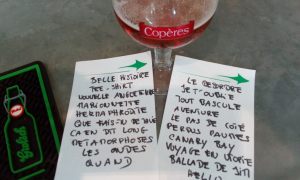 Copères
BELLE HISTOIRE
TEE-SHIRT
NOUVELLE
MARIONNETTE
HERMAPHRODITE
QUE FAIS-
CA EN DIT LONG
METAMORPHOSES
LES ONDES
QUAND
LE DESORDRE
JE T'OUBLIE
TOUT BASCULE
AVENTURE
LE PAS DE COTE
PERDUS
CANARY BAY
VOYAGE EN UTOPIE
BALLADE DE JIM
HELLO